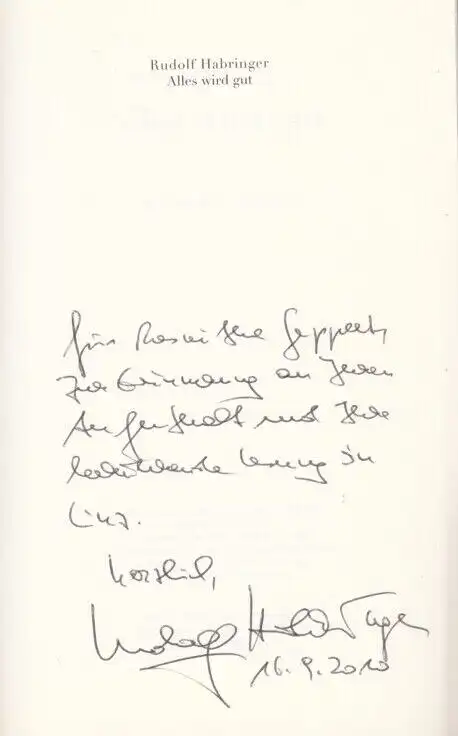 Rudolf Habringer
Alles wird gut
für Roswitha Geppert,
zur Erinnerung an Ihren
Aufenthalt und Ihre
Lesung in
Linz.
Herzlich,
Rudolf Habringer
16. 9. 2010